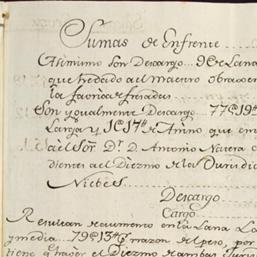 Sumas de Enfrente
Asimismo son Descargo 9@ de Lana
que tredado al maestro Obraxero
la favrica de frezadas
Son ygualmente Descargo 77@ 19
Larga y 1@ 17 de Anino que en
sia el Sor. Dr. Dn. Antonio Navera
dientes al Diezmo de la Juridic
Nietes
Descargo
Cargo
Resultan de aumento en la Lana La
y media 79@ 13 razon del peso, por
tiene q. haver el Diezmo de ambas Juris